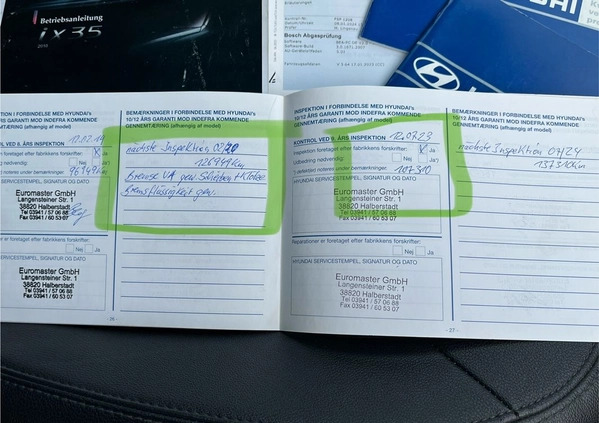 Betriebsanleitung
ix35
Bosch Abgasprüfung
HYUNDAI
17.07.19
BEMÆRKNINGER I FORBINDELSE MED HYUNDAI's
10/12 ÅRS GARANTI MOD INDEFRA KOMMENDE
GENNEMTÆRING (afhængig af model)
nächste Inspektion 07/20
126949 km
Bremse VA neu Scheiben + Klötze
Bremsflüssigkeit gew.
8. ÅRS INSPEKTION
foretaget efter fabrikkens forskrifter: X Ja
udbedring nødvendig: Nej Ja
noteres under bemærkninger: 96949 km
SERVICESTEMPEL, SIGNATUR OG DATO
Euromaster GmbH
Langensteiner Str. 1
38820 Halberstadt
Tel 03941 / 57 06 88
Fax 03941 / 60 53 07
er foretaget efter fabrikkens forskrifter:
Nej Ja
SERVICESTEMPEL, SIGNATUR OG DATO
Euromaster GmbH
Langensteiner Str. 1
38820 Halberstadt
Tel 03941 / 57 06 88
Fax 03941 / 60 53 07
- 26 -
INSPEKTION I FORBINDELSE MED HYUNDAI's
10/12 ÅRS GARANTI MOD INDEFRA KOMMENDE
GENNEMTÆRING (afhængig af model)
KONTROL VED 9. ÅRS INSPEKTION 12.07.23
Inspektion foretaget efter fabrikkens forskrifter: X Ja
Udbedring nødvendig: Nej Ja
107310
HYUNDAI SERVICESTEMPEL, SIGNATUR OG DATO
Euromaster GmbH
Langensteiner Str. 1
38820 Halberstadt
Tel 03941 / 57 06 88
Fax 03941 / 60 53 07
Reparationer er foretaget efter fabrikkens forskrifter:
Nej Ja
HYUNDAI SERVICESTEMPEL, SIGNATUR OG DATO
Euromaster GmbH
Langensteiner Str. 1
38820 Halberstadt
Tel 03941 / 57 06 88
Fax 03941 / 60 53 07
BEMÆRKNINGER I FORBINDELSE MED HYUNDAI's
10/12 ÅRS GARANTI MOD INDEFRA KOMMENDE
GENNEMTÆRING (afhængig af model)
nächste Inspektion 07/24
137310 km
- 27 -